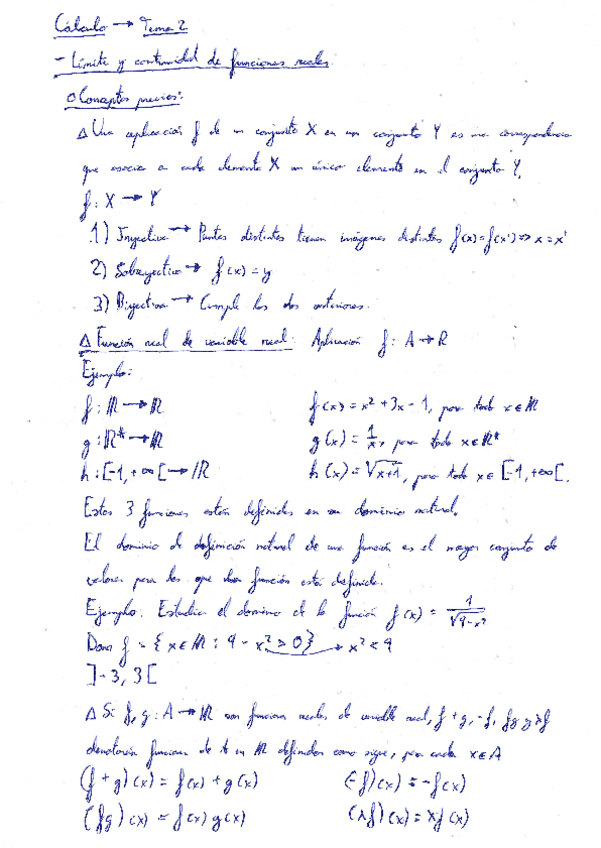 Cálculo → Tema 2
- Límite y continuidad de funciones reales.
○ Conceptos previos:
△ Una aplicación f de un conjunto X en un conjunto Y es una correspondencia
que asocia a cada elemento X un único elemento en el conjunto Y.
f: X → Y
1) Inyectiva → Puntos distintos tienen imágenes distintas f(x)=f(x') => x=x'
2) Sobreyectiva → f(x)=y
3) Biyectiva → Cumple las dos anteriores.
△ Función real de variable real: Aplicación f: A → R
Ejemplo:
f: ℝ → ℝ f(x) = x² + 3x - 1, para todo x ∈ ℝ
g: ℝ* → ℝ g(x) = 1/x, para todo x ∈ ℝ*
h: [-1, +∞[ → ℝ h(x) = √(x+1), para todo x ∈ [-1, +∞[.
Estas 3 funciones están definidas en su dominio natural.
El dominio de definición natural de una función es el mayor conjunto de
valores para los que dicha función está definida.
Ejemplo. Estudiar el dominio de la función f(x) = 1/√(9-x²)
Dom f = {x ∈ ℝ : 9 - x² > 0} → x² < 9
]-3, 3[
△ Si f, g: A → ℝ son funciones reales de variable real, f + g, -f, fg y λf
denotarán funciones de A en ℝ definidas como sigue, para cada x ∈ A
(f + g)(x) = f(x) + g(x) (-f)(x) = -f(x)
(fg)(x) = f(x) g(x) (λf)(x) = λf(x)